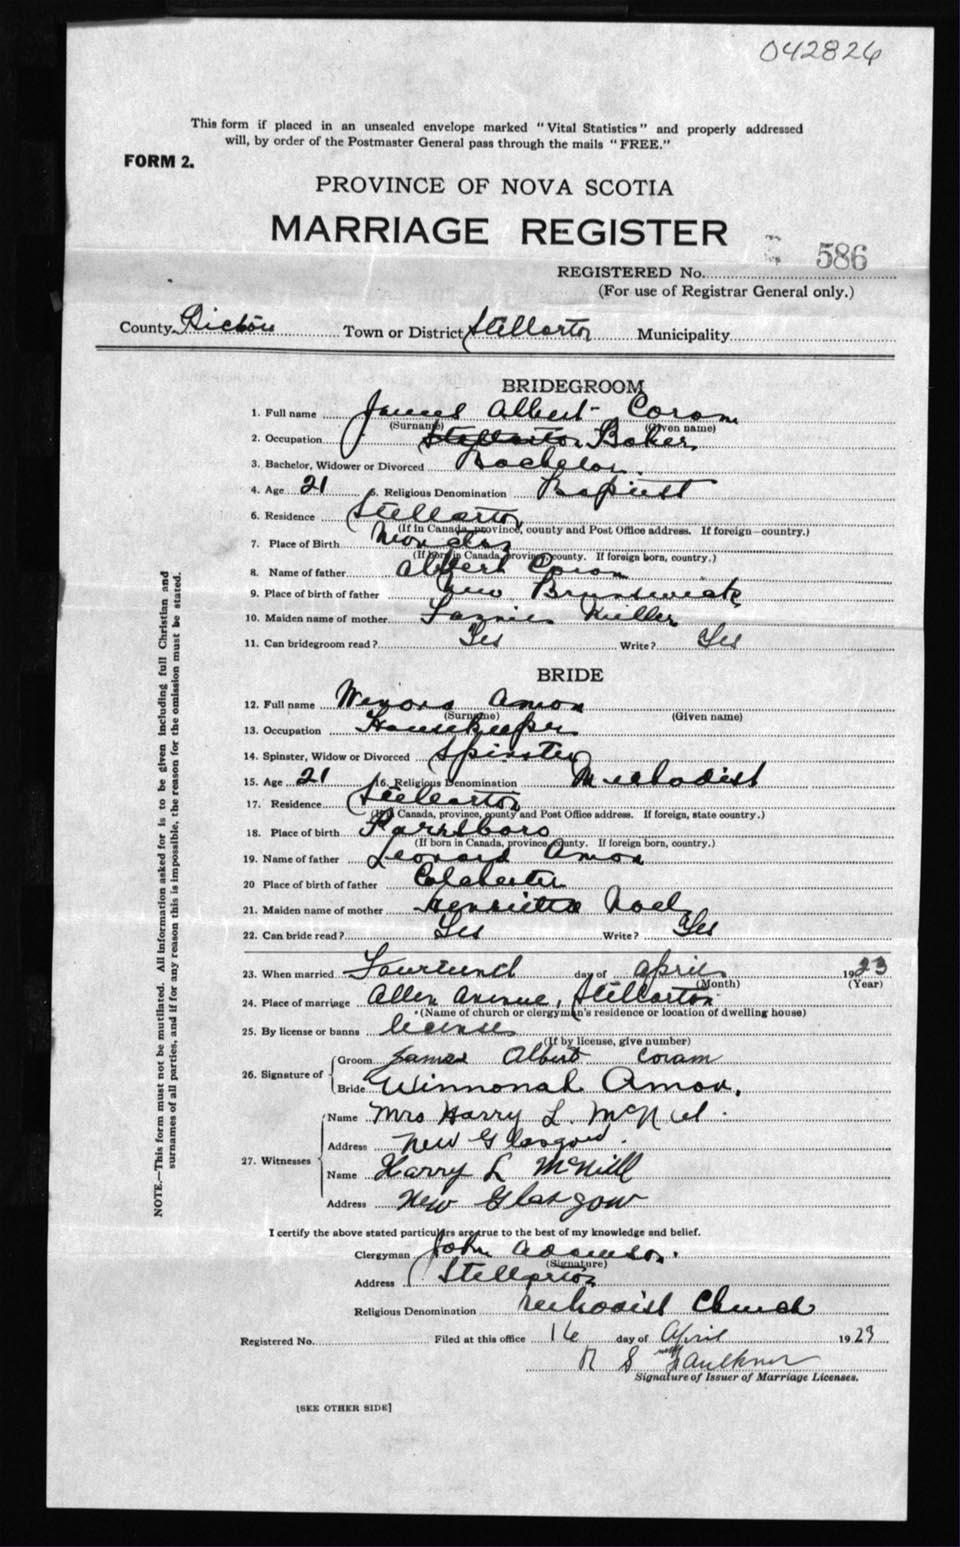 042826
This form if placed in an unsealed envelope marked "Vital Statistics" and properly addressed
will, by order of the Postmaster General pass through the mails "FREE."
FORM 2.
PROVINCE OF NOVA SCOTIA
MARRIAGE REGISTER
586
REGISTERED No.
(For use of Registrar General only.)
County Pictou Town or District Stellarton Municipality
BRIDEGROOM
1. Full name James Albert Coram
(Surname) (Given name)
2. Occupation Stellarton Baker
3. Bachelor, Widower or Divorced Bachelor.
4. Age 21 5. Religious Denomination Baptist
6. Residence Stellarton
(If in Canada, province, county and Post Office address. If foreign—country.)
7. Place of Birth
(If born in Canada, province, county. If foreign born, country.)
8. Name of father Albert Coram
9. Place of birth of father New Brunswick
10. Maiden name of mother Miller
11. Can bridegroom read? Yes Write? Yes
BRIDE
12. Full name Amon
(Surname) (Given name)
13. Occupation Housekeeper
14. Spinster, Widow or Divorced Spinster
15. Age 21 16. Religious Denomination Methodist
17. Residence Stellarton
(If in Canada, province, county and Post Office address. If foreign, state country.)
18. Place of birth Parrsboro
(If born in Canada, province, county. If foreign born, country.)
19. Name of father Leonard Amon
20 Place of birth of father Colchester
21. Maiden name of mother Henrietta Noel
22. Can bride read? Yes Write? Yes
23. When married day of April 1923
(Month) (Year)
24. Place of marriage Allen Avenue, Stellarton
(Name of church or clergyman's residence or location of dwelling house)
25. By license or banns license
(If by license, give number)
26. Signature of Groom James Albert Coram
Bride Winnonah Amon.
27. Witnesses Name Mrs Harry L. McNiel.
Address New Glasgow.
Name Harry L McNill
Address New Glasgow
I certify the above stated particulars are true to the best of my knowledge and belief.
Clergyman John Adamson.
(Signature)
Address Stellarton
Religious Denomination Methodist Church
Registered No. Filed at this office 16 day of April 1923
R S Faulkner
Signature of Issuer of Marriage Licenses.
[SEE OTHER SIDE]
NOTE.—This form must not be mutilated. All information asked for is to be given including full Christian and
surnames of all parties, and if for any reason this is impossible, the reason for the omission must be stated.